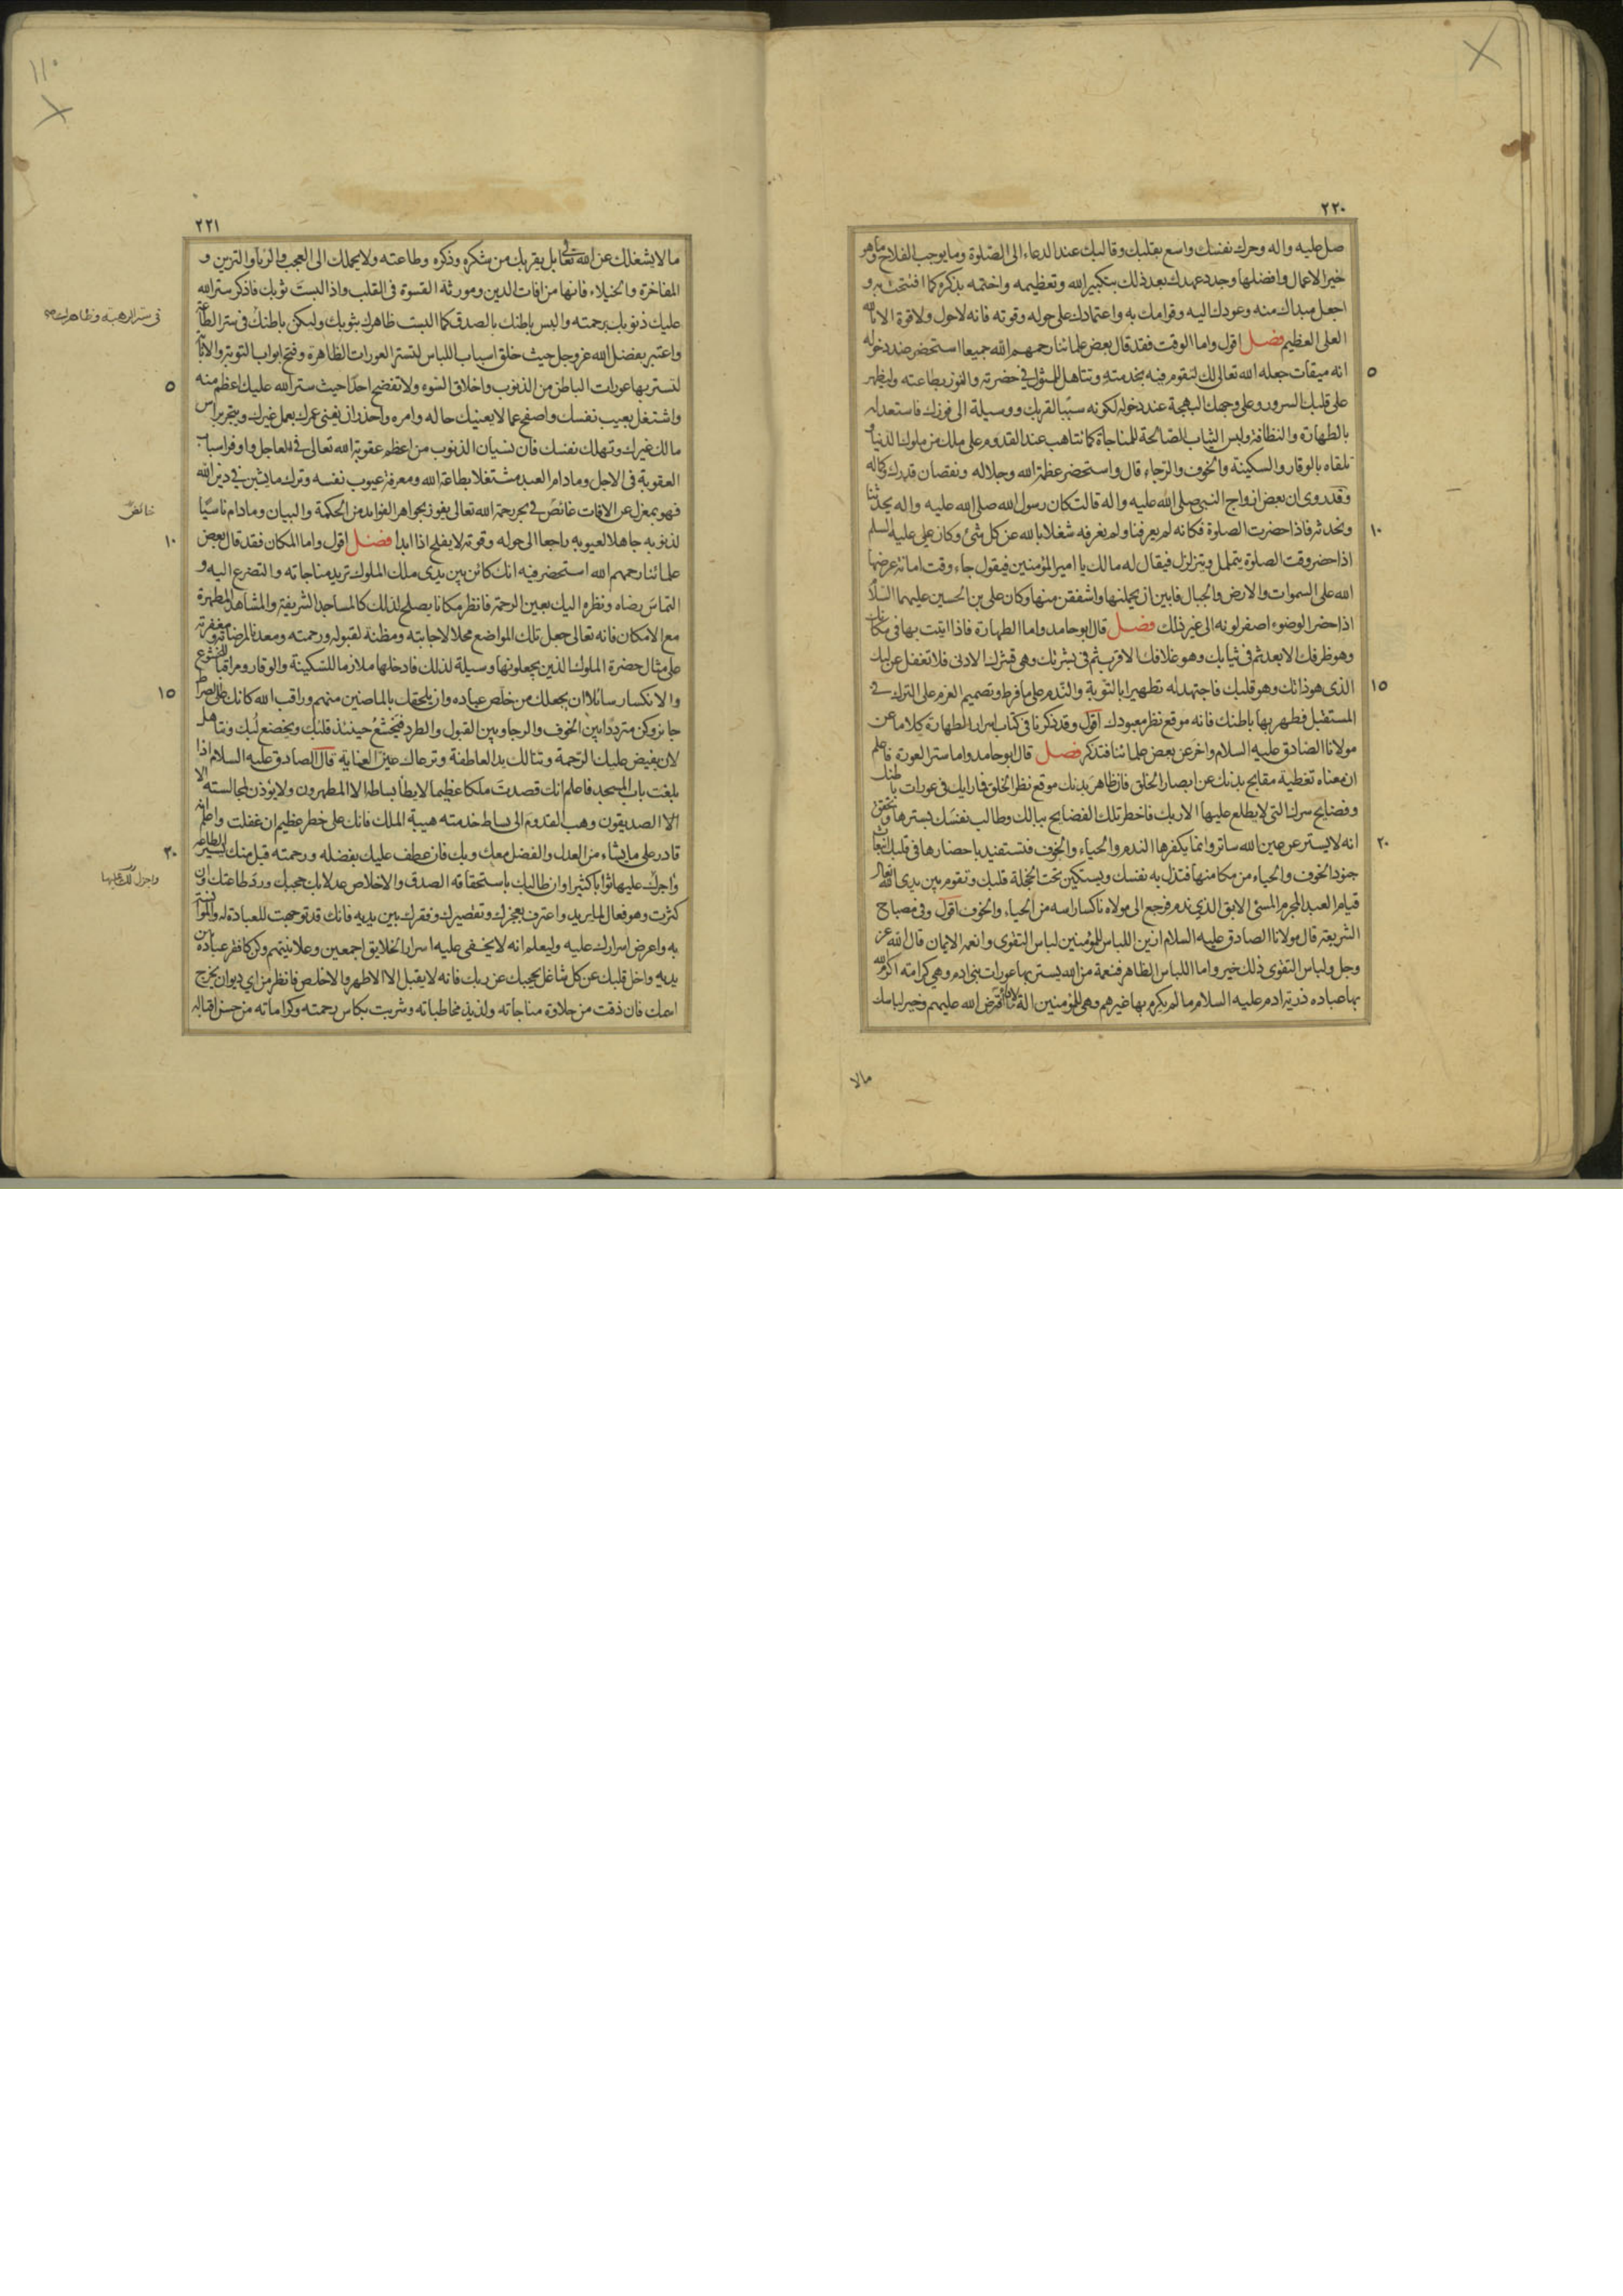 ٢٢٠
صل عليه واله وحرك نفسك واسع بقلبك وقالبك عند الدعاء الى الصلوة وما يوجب الفلاح وما هو
خير الاعمال وافضلها وجدد عهدك بعد ذلك بتكبير الله وتعظيمه واختمه بذكره كما افتتحت به و
اجعل مبداك منه وعودك اليه وقوامك به واعتمادك على حوله وقوته فانه لا حول ولا قوة الا بالله
العلى العظيم فصل اقول واما الوقت فقد قال بعض علمائنا رحمهم الله جميعا استحضر عند دخوله
٥
انه ميقات جعله الله تعالى لك لتقوم فيه بخدمته وتتاهل للمثول في حضرته والفوز بطاعته وليظهر
على قلبك السرور وعلى وجهك البهجة عند دخوله لكونه سببا لقربك ووسيلة الى فوزك فاستعد له
بالطهارة والنظافة ولبس الثياب الصالحة للمناجاة كما تتاهب عند القدوم على ملك من ملوك الدنيا و
تلقاه بالوقار والسكينة والخوف والرجاء قال واستحضر عظمة الله وجلاله ونقصان قدرك وكماله
وقد روى ان بعض ازواج النبى صلى الله عليه واله قالت كان رسول الله صلى الله عليه واله يحدثنا
١٠
ونحدثه فاذا حضرت الصلوة فكانه لم يعرفنا ولم نعرفه شغلا بالله عن كل شئ وكان على عليه السلم
اذا حضر وقت الصلوة يتململ ويتزلزل فيقال له مالك يا امير المؤمنين فيقول جاء وقت امانة عرضها
الله على السموات والارض والجبال فابين ان يحملنها واشفقن منها وكان على بن الحسين عليهما السلام
اذا حضر الوضوء اصفر لونه الى غير ذلك فصل قال ابو حامد واما الطهارة فاذا اتيت بها فى مكانك
وهو ظرفك الابعد ثم فى ثيابك وهو غلافك الاقرب ثم فى بشرتك وهى قشرك الادنى فلا تغفل عن لبك
١٥
الذى هو ذاتك وهو قلبك فاجتهد له تطهيرا بالتوبة والندم على ما فرط وتصميم العزم على الترك في
المستقبل فطهر بها باطنك فانه موقع نظر معبودك اقول وقد ذكرنا فى كتاب اسرار الطهارة كلاما عن
مولانا الصادق عليه السلام واخر عن بعض علمائنا فتذكر فصل قال ابو حامد واما ستر العورة فاعلم
ان معناه تغطية مقابح بدنك عن ابصار الخلق فان ظاهر بدنك موقع نظر الخلق فما رايك فى عورات باطنك
وفضايح سرك التى لا يطلع عليها الا ربك فاخطر تلك الفضايح ببالك وطالب نفسك بسترها وتحقق
٢٠
انه لا يستر عن عين الله ساتر وانما يكفرها الندم والحياء والخوف فتستفيد باحضارها فى قلبك انبعاث
جنود الخوف والحياء من مكامنها فتذل به نفسك ويستكين تحت الخجلة قلبك وتقوم بين يدى الله تعالى
قيام العبد المجرم المسئ الابق الذى ندم فرجع الى مولاه ناكسا راسه من الحياء والخوف اقول وفى مصباح
الشريعة قال مولانا الصادق عليه السلام ازين اللباس للمؤمنين لباس التقوى وانعمه الايمان قال الله عز
وجل ولباس التقوى ذلك خير واما اللباس الظاهر فنعمة من الله يستر بها عورات بنى ادم وهى كرامة اكرم الله
بها عباده ذرية ادم عليه السلام ما لم يكرم بها غيرهم وهى للمؤمنين الة لاداء ما افترض الله عليهم وخير لباسك
مالا
٢٢١
ما لا يشغلك عن الله تعالى بل يقربك من شكره وذكره وطاعته ولا يحملك الى العجب والرياء والتزين و
المفاخرة والخيلاء فانها من افات الدين ومورثة القسوة فى القلب واذا لبست ثوبك فاذكر ستر الله
عليك ذنوبك برحمته والبس باطنك بالصدق كما البست ظاهرك بثوبك وليكن باطنك فى ستر الطاعة
فى ستر الرهبة وظاهرك
واعتبر بفضل الله عز وجل حيث خلق اسباب اللباس لتستر العورات الظاهرة وفتح ابواب التوبة والانابة
٥
لتستر بها عورات الباطن من الذنوب واخلاق السوء ولا تفضح احدا حيث ستر الله عليك اعظم منه
واشتغل بعيب نفسك واصفح عما لا يعنيك حاله وامره واحذر ان يفنى عمرك بعمل غيرك ويتجر براس
مالك غيرك وتهلك نفسك فان نسيان الذنوب من اعظم عقوبة الله تعالى في العاجل واوفر اسباب
العقوبة فى الاجل وما دام العبد مشتغلا بطاعة الله ومعرفة عيوب نفسه وترك ما يشين في دين الله
فهو بمعزل عن الافات غائص في بحر رحمة الله تعالى يفوز بجواهر الفوايد من الحكمة والبيان وما دام ناسيا
خائض
١٠
لذنوبه جاهلا لعيوبه راجعا الى حوله وقوته لا يفلح اذا ابدا فصل اقول واما المكان فقد قال بعض
علمائنا رحمهم الله استحضر فيه انك كائن بين يدى ملك الملوك تريد مناجاته والتضرع اليه و
التماس رضاه ونظره اليك بعين الرحمة فانظر مكانا يصلح لذلك كالمساجد الشريفة والمشاهد المطهرة
مع الامكان فانه تعالى جعل تلك المواضع محلا لاجابته ومظنة لقبوله ورحمته ومعدنا لمرضاته ومغفرته
على مثال حضرة الملوك الذين يجعلونها وسيلة لذلك فادخلها ملازما للسكينة والوقار ومراقبا للخشوع
١٥
والانكسار سائلا ان يجعلك من خلص عباده وان يلحقك بالماضين منهم وراقب الله كانك على الصراط
جائز وكن مترددا بين الخوف والرجا وبين القبول والطرد فيخشع حينئذ قلبك ويخضع لبك وتتاهل
لان يفيض عليك الرحمة وتنالك يد العاطفة وترعاك عين العناية قال الصادق عليه السلام اذا
بلغت باب المسجد فاعلم انك قصدت ملكا عظيما لا يطأ بساطه الا المطهرون ولا يؤذن لمجالسته الا
الا الصديقون وهب القدوم الى بساط خدمته هيبة الملك فانك على خطر عظيم ان غفلت واعلم انه
٢٠
قادر على ما يشاء من العدل والفضل معك وبك فان عطف عليك بفضله ورحمته قبل منك يسير الطاعة
واجزل لك عليها
واجرك عليها ثوابا كثيرا وان طالبك باستحقاقه الصدق والاخلاص عدلا بك حجبك ورد طاعتك وان
كثرت وهو فعال لما يريد واعترف بعجزك وتقصيرك وفقرك بين يديه فانك قد توجهت للعبادة له والمؤانسة
به واعرض اسرارك عليه وليعلم انه لا يخفى عليه اسرار الخلايق اجمعين وعلانيتهم وكن كافقر عباده بين
يديه واخل قلبك عن كل شاغل يحجبك عن ربك فانه لا يقبل الا الاطهر والاخلص فانظر من اى ديوان يخرج
اسمك فان ذقت من حلاوة مناجاته ولذيذ مخاطباته وشربت بكاس رحمته وكراماته من حسن اقباله
١١٠